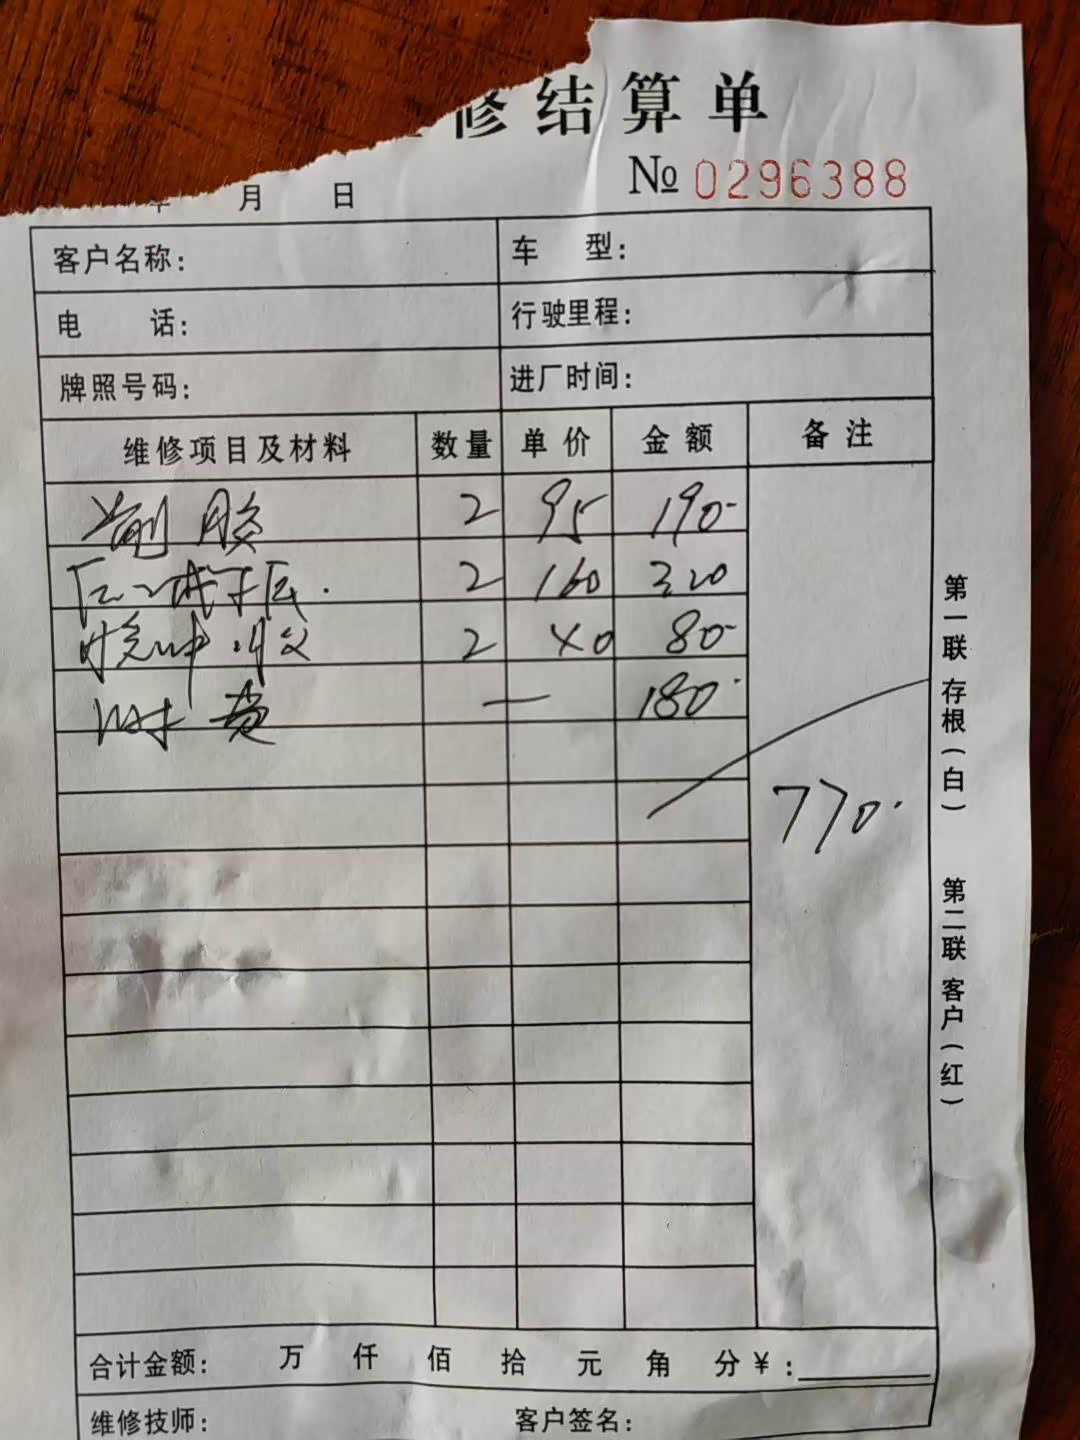 修结算单
月 日
№ 0296388
客户名称： 车 型：
电 话： 行驶里程：
牌照号码： 进厂时间：
维修项目及材料 数量 单价 金额 备注
前 胶 2 95 190-
2 160 320
缓冲胶 2 40 80-
时费 — 180.
770.
合计金额： 万 仟 佰 拾 元 角 分￥：
维修技师： 客户签名：
第一联 存根（白）
第二联 客户（红）